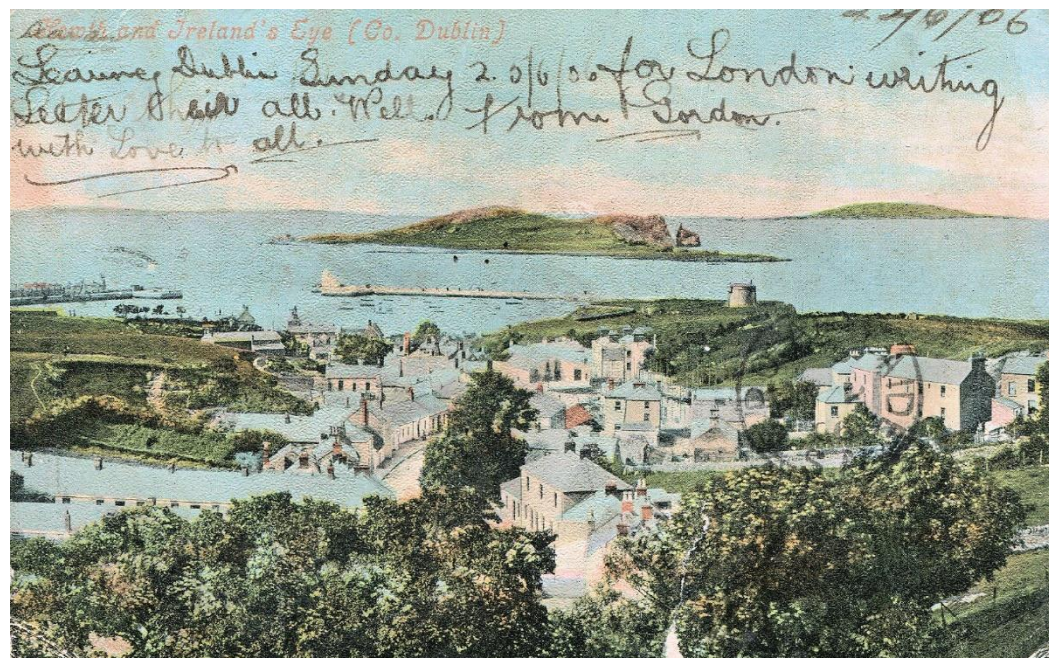 Howth and Ireland's Eye (Co. Dublin)
/6/06
Leaving Dublin Sunday for London writing
Letter all. Well. From Gordon.
with Love to all.